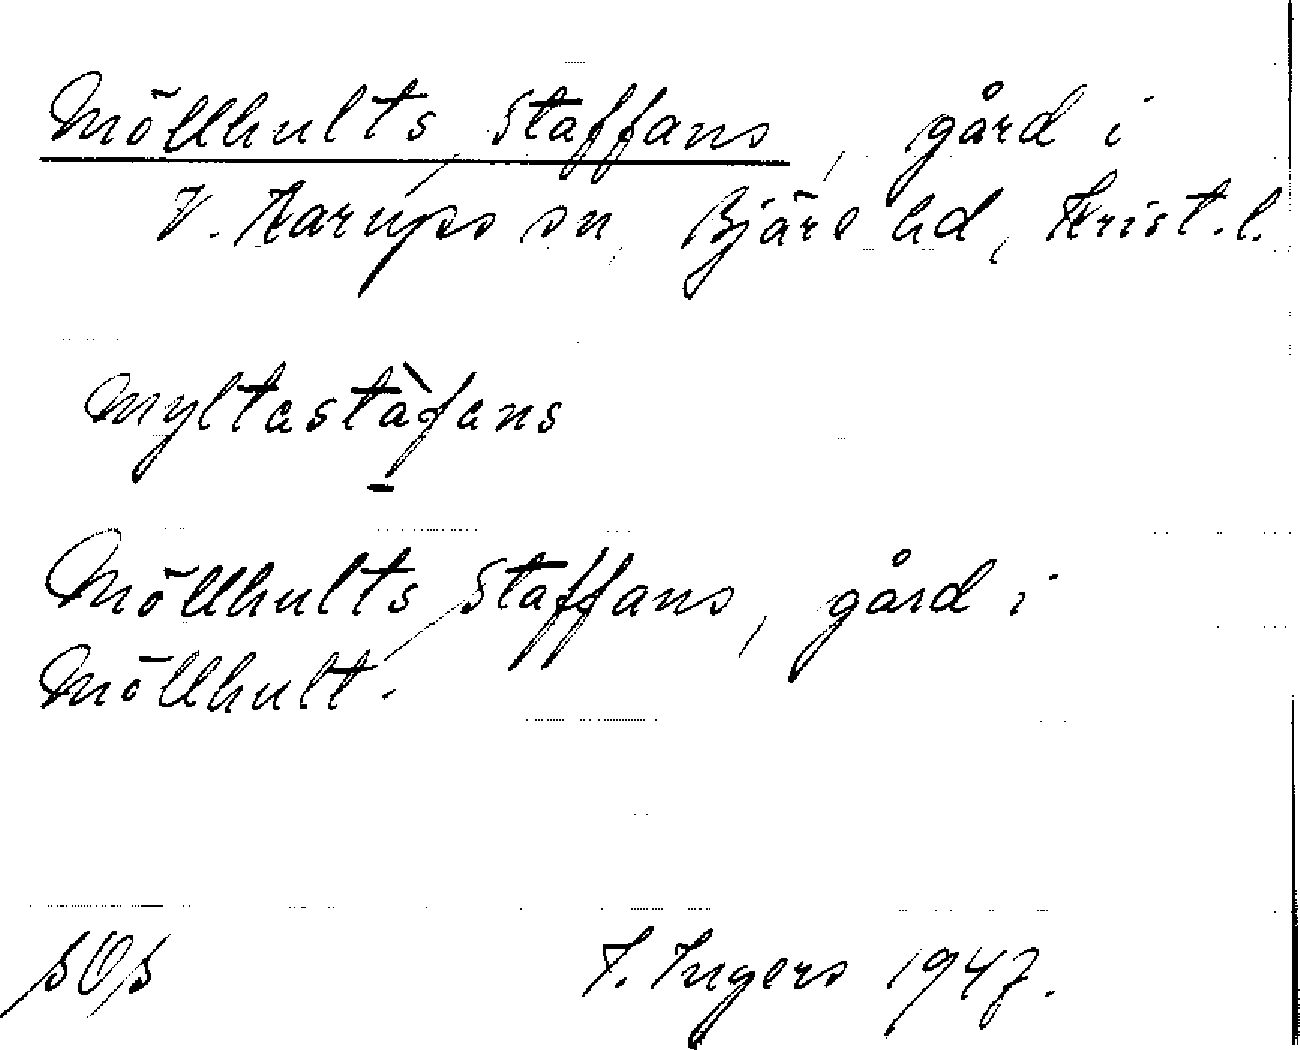 Möllhults Staffans, gård i
V. Karups sn, Bjäre hd, Krist. l.
myltastàfans
Möllhults Staffans, gård i
Möllhult.
I. Ingers 1947.